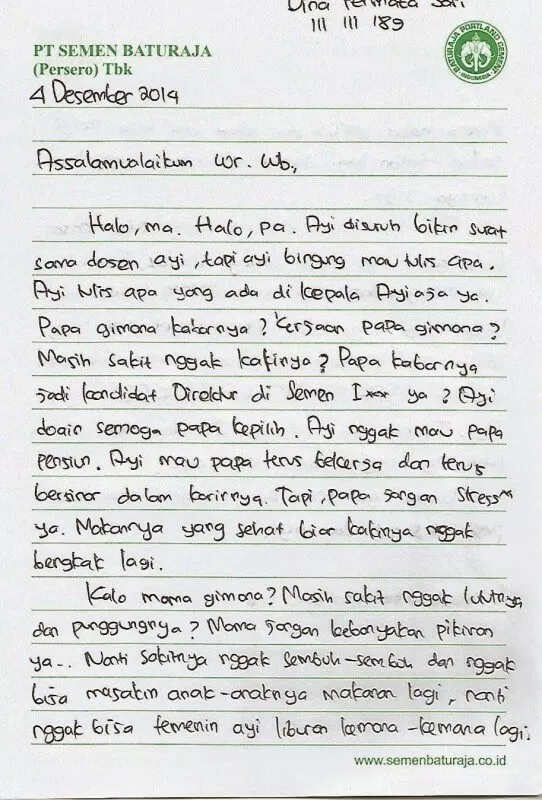 Dina Permata Sari
111 111 189
PT SEMEN BATURAJA
(Persero) Tbk
BATURAJA PORTLAND CEMENT
INDONESIA
4 Desember 2014
Assalamualaikum wr. wb.,
Halo, ma. Halo, pa. Ayi disuruh bikin surat
sama dosen ayi, tapi ayi bingung mau tulis apa.
Ayi tulis apa yang ada di kepala Ayi aja ya.
Papa gimana kabarnya? Kerjaan papa gimana?
Masih sakit nggak kakinya? Papa kabarnya
jadi kandidat Direktur di Semen I*** ya? Ayi
doain semoga papa kepilih. Ayi nggak mau papa
pensiun. Ayi mau papa terus bekerja dan terus
bersinar dalam karirnya. Tapi, papa jangan stress^n
ya. Makannya yang sehat biar kakinya nggak
bengkak lagi.
Kalo mama gimana? Masih sakit nggak lututnya
dan punggungnya? Mama jangan kebanyakan pikiran
ya... Nanti sakitnya nggak sembuh-sembuh dan nggak
bisa masakin anak-anaknya makanan lagi, nanti
nggak bisa temenin ayi liburan kemana-kemana lagi.
www.semenbaturaja.co.id